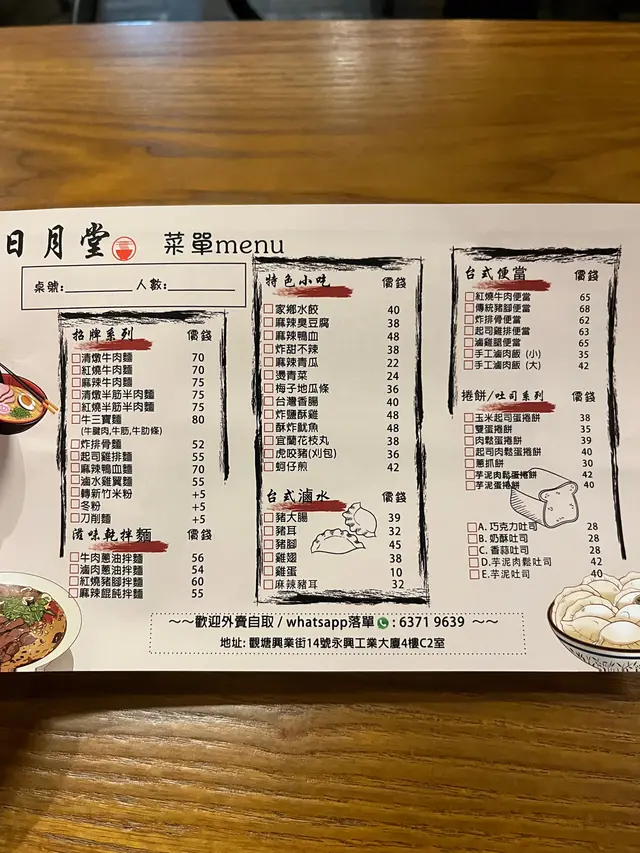 日月堂
菜單menu
桌號:________ 人數:________
招牌系列 價錢
清燉牛肉麵 70
紅燒牛肉麵 70
麻辣牛肉麵 75
清燉半筋半肉麵 75
紅燒半筋半肉麵 75
牛三寶麵 80
(牛腱肉,牛筋,牛肋條)
炸排骨麵 52
起司雞排麵 55
麻辣鴨血麵 70
滷水雞翼麵 55
轉新竹米粉 +5
冬粉 +5
刀削麵 +5
滋味乾拌麵 價錢
牛肉蔥油拌麵 56
滷肉蔥油拌麵 54
紅燒豬腳拌麵 60
麻辣餛飩拌麵 55
特色小吃 價錢
家鄉水餃 40
麻辣臭豆腐 38
麻辣鴨血 48
炸甜不辣 38
麻辣青瓜 22
燙青菜 24
梅子地瓜條 36
台灣香腸 40
炸鹽酥雞 48
酥炸魷魚 48
宜蘭花枝丸 38
虎咬豬(刈包) 36
蚵仔煎 42
台式滷水 價錢
豬大腸 39
豬耳 32
豬腳 45
雞翅 38
雞蛋 10
麻辣豬耳 32
台式便當 價錢
紅燒牛肉便當 65
傳統豬腳便當 68
炸排骨便當 62
起司雞排便當 63
滷雞腿便當 65
手工滷肉飯 (小) 35
手工滷肉飯 (大) 42
捲餅/吐司系列 價錢
玉米起司蛋捲餅 38
雙蛋捲餅 35
肉鬆蛋捲餅 39
起司肉鬆蛋捲餅 40
蔥抓餅 30
芋泥肉鬆蛋捲餅 42
芋泥蛋捲餅 40
A. 巧克力吐司 28
B. 奶酥吐司 28
C. 香蒜吐司 28
D.芋泥肉鬆吐司 42
E.芋泥吐司 40
~~歡迎外賣自取 / whatsapp落單 : 6371 9639 ~~
地址: 觀塘興業街14號永興工業大廈4樓C2室